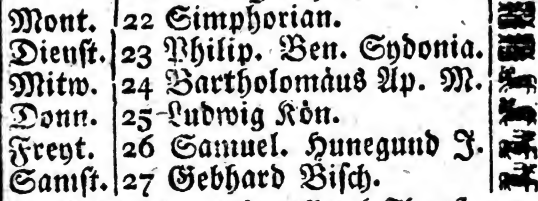 Mont. 22 Simphorian.
Dienst. 23 Philip. Ben. Sydonia.
Mitw. 24 Bartholomäus Ap. M.
Donn. 25 Ludwig Kön.
Freyt. 26 Samuel. Hunegund J.
Samst. 27 Gebhard Bisch.